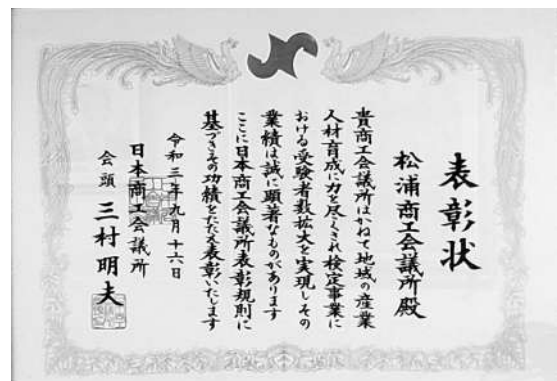 表彰状
松浦商工会議所殿
貴商工会議所はかねて地域の産業
人材育成に力を尽くされ検定事業に
おける受験者数拡大を実現しその
業績は誠に顕著なものがあります
ここに日本商工会議所表彰規則に
基づきその功績をたたえ表彰いたします
令和三年九月十六日
日本商工会議所
会頭 三村明夫